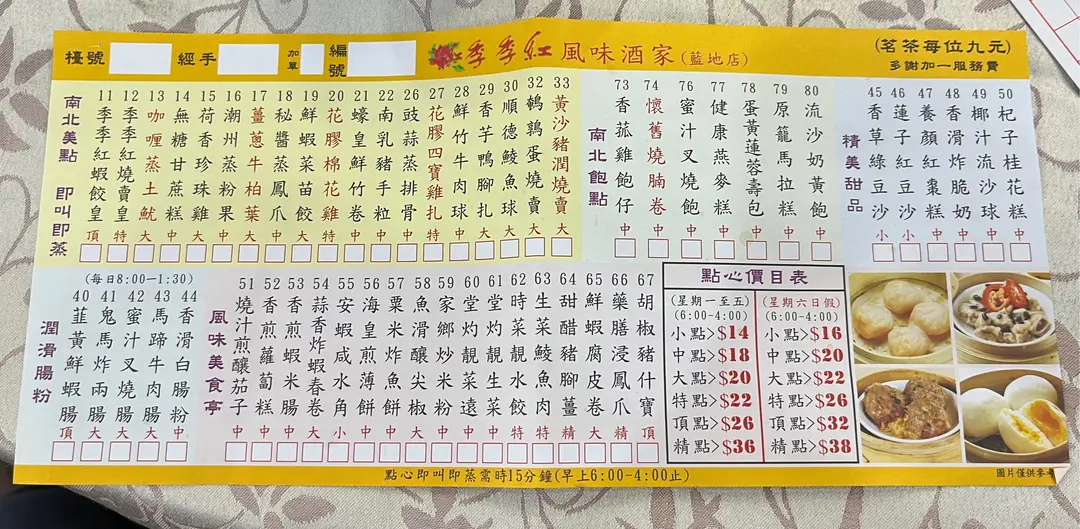 檯號
經手
加單
編號
季季紅風味酒家(藍地店)
(茗茶每位九元)
多謝加一服務費
南北美點 即叫即蒸
11 季季紅蝦餃皇 頂
12 季季紅燒賣皇 特
13 咖喱蒸土魷 大
14 無糖甘蔗糕 中
15 荷香珍珠雞 大
16 潮州蒸粉果 中
17 薑蔥牛柏葉 大
18 秘醬蒸鳳爪 中
19 鮮蝦菜苗餃 中
20 花膠棉花雞 大
21 蠔皇鮮竹卷 中
22 南乳豬手粒 中
26 豉蒜蒸排骨 中
27 花膠四寶雞扎 特
28 鮮竹牛肉球 中
29 香芋鴨腳扎 大
30 順德鯪魚球 大
32 鵪鶉蛋燒賣 大
33 黃沙豬潤燒賣 大
南北飽點
73 香菇雞飽仔 中
74 懷舊燒腩卷 特
76 蜜汁叉燒飽 中
77 健康燕麥糕 中
78 蛋黃蓮蓉壽包 中
79 原籠馬拉糕 中
80 流沙奶黃飽 中
精美甜品
45 香草綠豆沙 小
46 蓮子紅豆沙 小
47 養顏紅棗糕 中
48 香滑炸脆奶 中
49 椰汁流沙球 中
50 杞子桂花糕 中
(每日8:00-1:30)
潤滑腸粉
40 韮黃鮮蝦腸 頂
41 鬼馬炸兩腸 大
42 蜜汁叉燒腸 大
43 馬蹄牛肉腸 大
44 香滑白腸粉 中
風味美食亭
51 燒汁煎釀茄子 中
52 香煎蘿蔔糕 中
53 香煎蝦米腸 中
54 蒜香炸蝦春卷 大
55 安蝦咸水角 小
56 海皇煎薄餅 中
57 粟米炸魚餅 中
58 魚滑釀尖椒 大
59 家鄉炒米粉 中
60 堂灼靚菜遠 中
61 堂灼靚生菜 中
62 時菜靚水餃 特
63 生菜鯪魚肉 特
64 甜醋豬腳薑 精
65 鮮蝦腐皮卷 大
66 藥膳浸鳳爪 精
67 胡椒豬什寶 頂
點心價目表
(星期一至五)
(6:00-4:00)
小點>$14
中點>$18
大點>$20
特點>$22
頂點>$26
精點>$36
(星期六日假)
(6:00-4:00)
小點>$16
中點>$20
大點>$22
特點>$26
頂點>$32
精點>$38
點心即叫即蒸需時15分鐘(早上6:00-4:00止)
圖片僅供參考